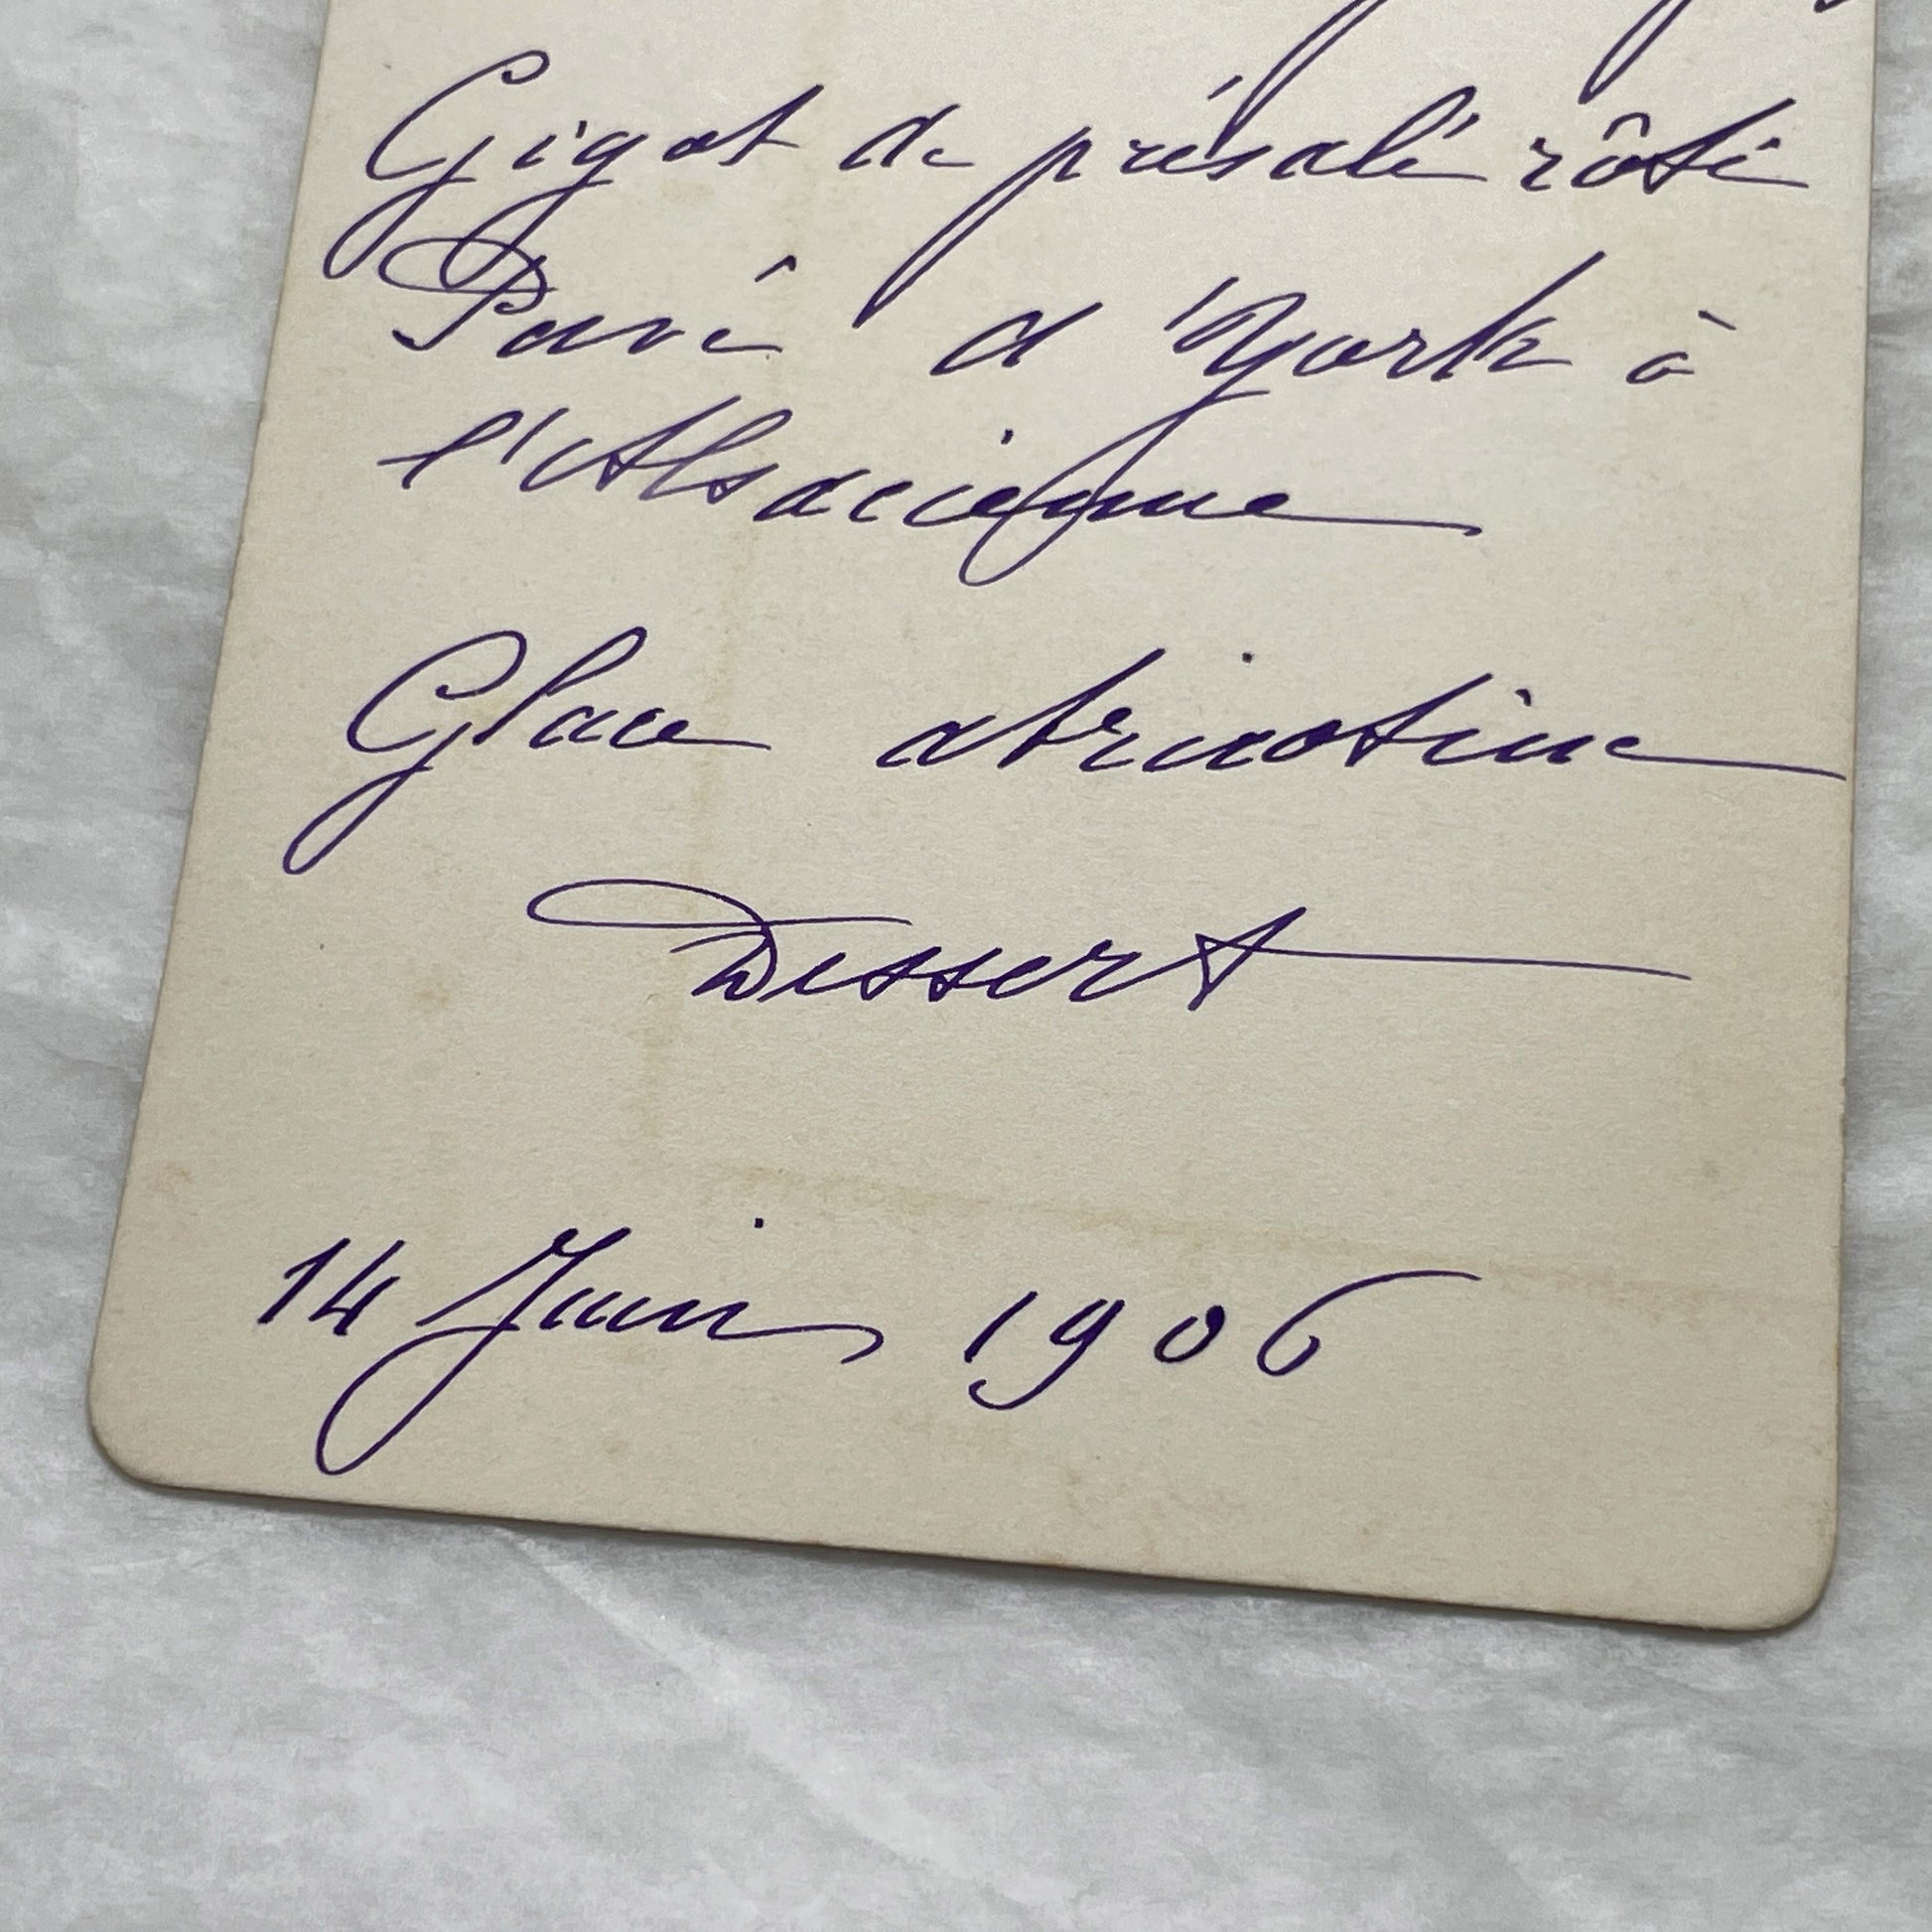 Gigot de présalé rôti
Pavé d'York à
l'Alsacienne
Glace abricotine
Dessert
14 Juin 1906